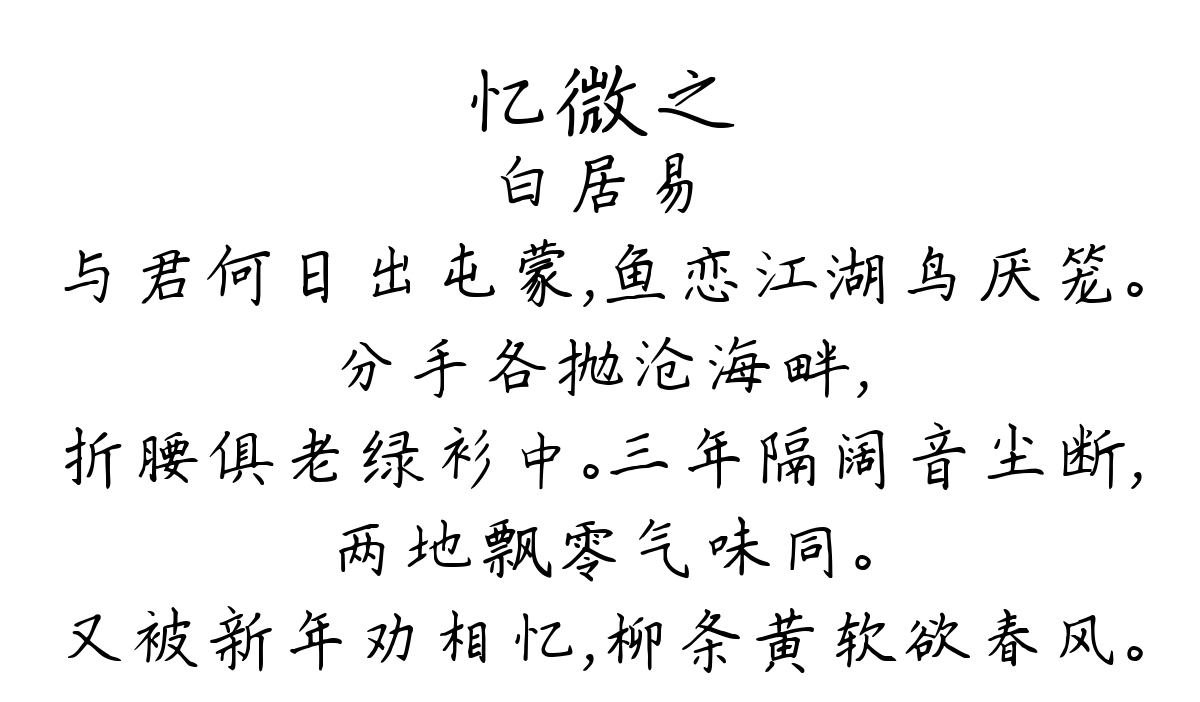 忆微之
白居易
与君何日出屯蒙,鱼恋江湖鸟厌笼。
分手各抛沧海畔,
折腰俱老绿衫中。三年隔阔音尘断,
两地飘零气味同。
又被新年劝相忆,柳条黄软欲春风。